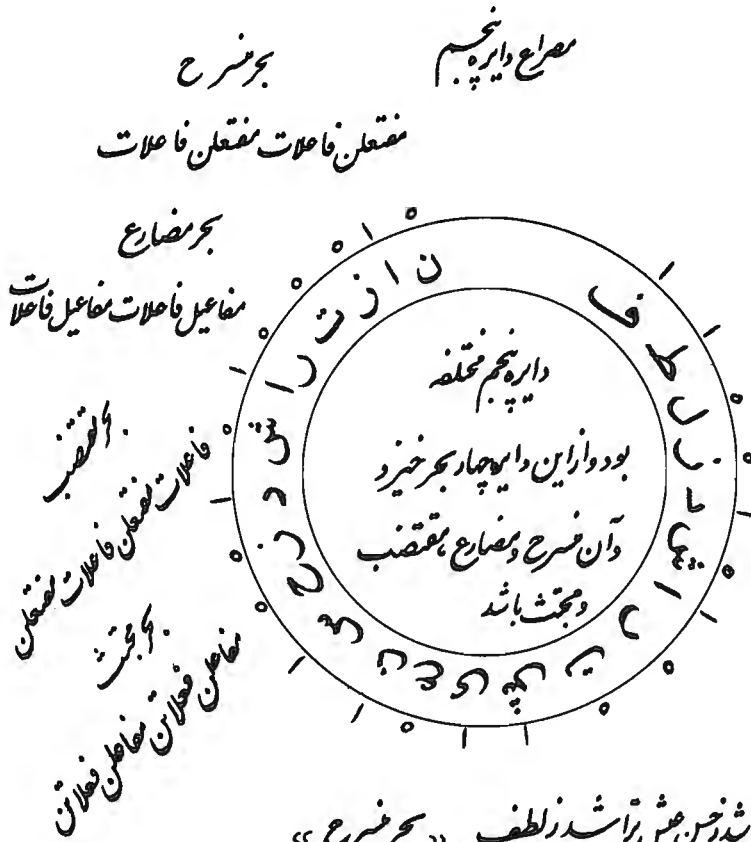 مصراع دایره پنجم
بحر منسرح
مفتعلن فاعلات مفتعلن فاعلات
بحر مضارع
مفاعیل فاعلات مفاعیل فاعلات
بحر مقتضب
فاعلات مفتعلن فاعلات مفتعلن
بحر مجتث
مفاعلن فعلاتن مفاعلن فعلاتن
ن ا ز ت ر ا ش د ز ح س ن ع ی ش ت ر ا ش د ز ل ط ف
دایره پنجم مختلفه
بود و از این دایره چهار بحر خیزد
و آن منسرح و مضارع، مقتضب
و مجتث باشد
شد ز حسن عیش ترا شد ز لطف «بحر منسرح»